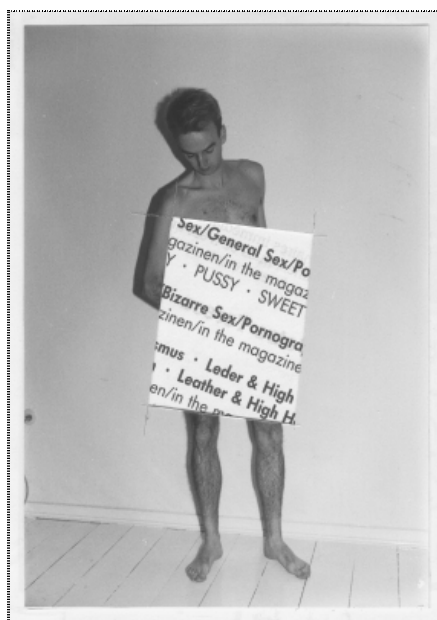 Sex/General Sex/Po
gazinen/in the magaz
Y · PUSSY · SWEET
Bizarre Sex/Pornogra
zinen/in the magazine
smus · Leder & High
· Leather & High H
en/in the